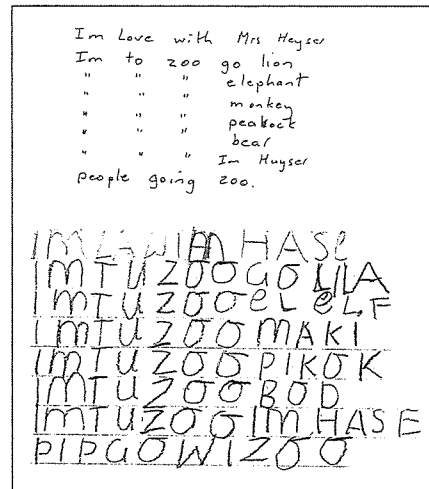 Im Love with Mrs Heyser
Im to zoo go lion
" " " elephant
" " " monkey
" " " peakock
" " " bear
" " " Im Huyser
people going zoo.
IM HASe
IMTUZOOGOLIA
IMTUZOOeLeLF
IMTUZOOMAKI
IMTUZOOPIKOK
IMTUZOOBOD
IMTUZOOIMHASE
PIPGOWIZOO